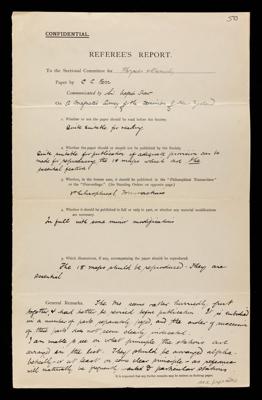 50
CONFIDENTIAL.
REFEREE'S REPORT.
To the Sectional Committee for Physics & Chemistry
Paper by C. C. Farr
Communicated by
On A Magnetic Survey of the Dominion of New Zealand
1. Whether or not the paper should be read before the Society.
Quite suitable for reading
2. Whether the paper should or should not be published by the Society.
Quite suitable for publication if adequate provision can be
made for reproducing the 18 maps which are the
essential feature
3. Whether, in the former case, it should be published in the "Philosophical Transactions"
or the "Proceedings". (See Standing Orders on opposite page.)
Philosophical Transactions
4. Whether it should be published in full or only in part, or whether any material modifications
are necessary.
In full with some minor modifications
5. Which illustrations, if any, accompanying the paper should be reproduced.
The 18 maps should be reproduced. They are
essential
General Remarks. The MS seems rather hurriedly put
together & had better be revised before publication. It is embodied
in a number of parts separately typed, and the order of succession
of these parts does not seem clearly indicated.
I am unable to see on what principle the stations are
arranged in the text. They should be arranged alpha-
betically or at least on some clear principle – as reference
will naturally be frequently made to particular stations
It is requested that any further remarks may be written on the back page.